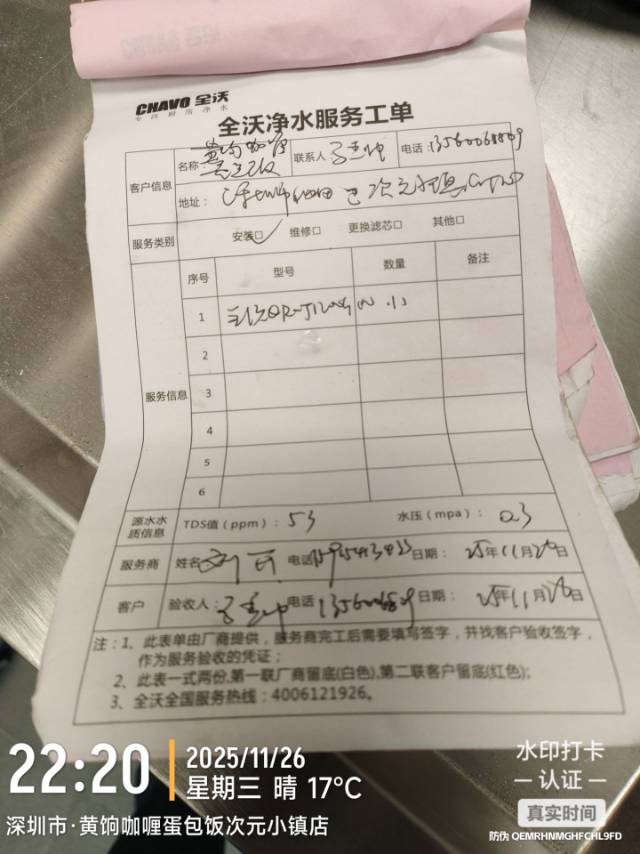 CHAVO 全沃
专注厨房净水
全沃净水服务工单
客户信息 名称: 黄饷咖喱 联系人 电话:
地址:
服务类别 安装□ 维修□ 更换滤芯□ 其他□
服务信息 序号 型号 数量 备注
1
2
3
4
5
6
源水水质信息 TDS值(ppm): 53 水压(mpa): 0.3
服务商 姓名 电话 日期: 25年11月26日
客户 验收人: 电话 日期: 25年11月26日
注:1、此表单由厂商提供,服务商完工后需要填写签字,并找客户验收签字,
作为服务验收的凭证;
2、此表一式两份,第一联厂商留底(白色),第二联客户留底(红色);
3、全沃全国服务热线:4006121926。
22:20 2025/11/26
星期三 晴 17°C
深圳市·黄饷咖喱蛋包饭次元小镇店
水印打卡
认证
真实时间
防伪 QEMRHNMGHFCHL9FD